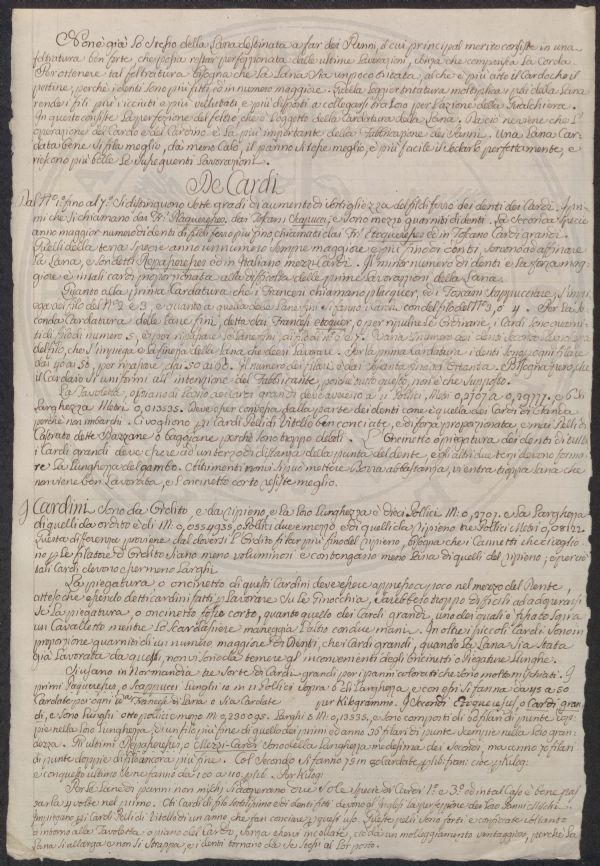 Non è già lo stesso della Lana destinata a far dei Panni, il cui principal merito consiste in una
feltratura ben forte, che possa restar perfezionata dalle ultime Lavorazioni, senza che comparisca la Corda.
Per ottenere tal feltratura bisogna che la Lana sia un poco tritata, al che è più atto il Cardo che il
pettine, perchè i denti sono più fitti, e in numero maggiore. Quella leggier tritatura moltiplica i peli della Lana
rende i fili più ricciuti e più vellutati e più disposti a collegarsi tra loro per l'azione della Gualchiera.
In questo consiste la perfezione del feltro, che è l'oggetto della Cardatura della Lana. Da ciò ne viene che l'
operazione del Cardo e del Cardino è la più importante della Fabbricazione dei Panni. Una Lana Car-
data bene si fila meglio, dà meno Calo, il panno si tesse meglio, è più facile il sodarlo perfettamente, e
riescono più belle le susseguenti Lavorazioni.
De Cardi
Dal N° 1° fino al 7° si distinguono sette gradi di aumento di sottigliezza del fil di ferro dei denti dei Cardi. I pri-
mi che si chiamano dai Fr: Plaqueresses, dai Toscani Scapucci, e sono mezzo guarniti di denti. La Seconda Specie
anno maggior numero di denti di fil di ferro più fino chiamati dai Fr: Etoqueresses ed in Toscano Cardi grandi.
Quelli della terza Specie anno un numero sempre maggiore e più fino di denti, servono ad affinare
la Lana, e son detti Repasseresses ed in Italiano mezzi-Cardi. Il minor numero di denti e la forza mag-
giore è in tali cardi proporzionata alla difficoltà delle prime Lavorazioni della Lana.
Quanto alla prima Cardatura che i Francesi chiamano plaquer, ed i Toscani Scappucciare, s'impie-
ga del filo del N° 2 e 3, e quanto a quella delle Lane fini si fanno i Cardi con del filo del N° 3, o 4. Per la Se-
conda Cardatura delle lane fini, detta dai Francesi etoquer, o per ripulire le Ordinarie, i Cardi sono guarni-
ti di filo di numero 5, e per ripassare le Lane fini, di filo di N° 6 e 7. Varia il numero dei denti secondo la grossezza
del filo, che s'impiega e la finezza della Lana che devesi Lavorare. Per la prima Cardatura i denti lungo ogni filare
dai 40 ai 50, per ripassare, dai 50 ai 60. Il numero dei filari è dai Sessanta fino ai Ottanta. Bisogna però, che
il Cardaio si uniformi all'intenzione del Fabbricante, poichè tutto questo, non è che supposto.
La Tavoletta, o piano di legno dei cardi grandi deve avere 10 a 11 Pollici, Metri 0,2707 a 0,29777. e 6 di
Larghezza Metri 0,013535. Deve esser convessa dalla parte dei denti come è quella dei Cardi di Stanza
perchè non imbarchi. Ci vogliono per i Cardi Pelli di Vitello ben conciate, e di forza proporzionata, e mai Pelli di
Castrato dette Bazzane o bagagiane perchè son troppo deboli. L'Oncinetto o piegatura dei denti di tutti
i Cardi grandi deve essere ad un terzo di distanza dalla punta del dente, e gli altri due terzi devono forma-
re la Lunghezza del gambo. Altrimenti non si può mettere Borra abbastanza, vi entra troppa Lana che
non viene ben Lavorata, e l'oncinetto corto resiste meglio.
I Cardini sono da Ordito, e da ripieno, e la loro Lunghezza è dieci Pollici M: 0,2707. e la Larghezza
di quelli da ordito è di M: 0,0554935, o Pollici due e mezzo, e di quelli da ripieno tre Pollici Metri 0,08122
Questa differenza proviene dal doversi l'Ordito filar più fino del ripieno, bisogna che i Cannetti che ci voglio-
no per le filatore d'Ordito siano meno voluminosi e contengano meno Lana di quelli del ripieno; e perciò
tali Cardi devono esser meno Larghi.
La piegatura o oncinetto di questi Cardini deve essere appresso a poco nel mezzo del Dente,
attesochè essendo detti cardini fatti per lavorare su le Ginocchia, sarebbero troppo difficili ad adoperarsi
se la piegatura o oncinetto fosse corto, quanto quello dei Cardi grandi, uno dei quali è fissato sopra
un Cavalletto mentre lo Scardassiere maneggia l'altro con due mani. In oltre i piccoli Cardi sono in
proporzione guarniti di un numero maggiore di Denti, che i Cardi grandi, e quando la Lana sia stata
già lavorata da questi, non vi sono da temere gl'inconvenienti degli Oncinetti o Piegature Lunghe.
Si usano in Normandia tre sorte di Cardi grandi per i panni colorati che sono molto mischiati. I
primi Plaqueresses, o Scappucci lunghi 10 in 11 Pollici sopra 6 di Larghezza e con essi si fanno da 45 a 50
Cardate per ogni Lib. Francese di Lana o sia Cardate per Kilogrammo. I Secondi Etoqueresses, o Cardi gran-
di, e sono Lunghi otto pollici e mezzo M: 0,230095. Larghi 6 M: 0,13535, e sono composti di 60 filari di punte dop-
pie nella loro Lunghezza, di un filo più fine di quello dei primi ed anno 35 filari di punte sempie nella loro gran-
dezza. Gli ultimi Repasseresses, o Mezzi-Cardi sono della Lunghezza medesima dei Secondi, ma anno 70 filari
di punte doppie di filo ancora più fine. Col Secondo si fanno 75 in 80 Cardate p libb. franc. cioè p Kilog.
e con questo ultimo se ne fanno da 100 a 110 p lib. Per Kilog.
Per le Lane di panni non misti si adoperano due sole specie di Cardi 1° e 3° ed in tal Caso è bene pas-
sarla 4 volte nel primo. Chi Cardi di filo sottilissimo e di denti fitti devono gl'Inglesi la perfezione dei loro Panni mischi.
Impiegano per i Cardi Pelli di Vitelli di un anno che fan conciare per questi usi. Queste pelli sono forti e conficcate soltanto
d'intorno alla Tavoletta o piano del Cardo, senza esservi incollate, ciò dà un molleggiamento vantaggioso, perchè la
Lana si allarga e non si strappa, e i denti tornano da se stessi al lor posto.